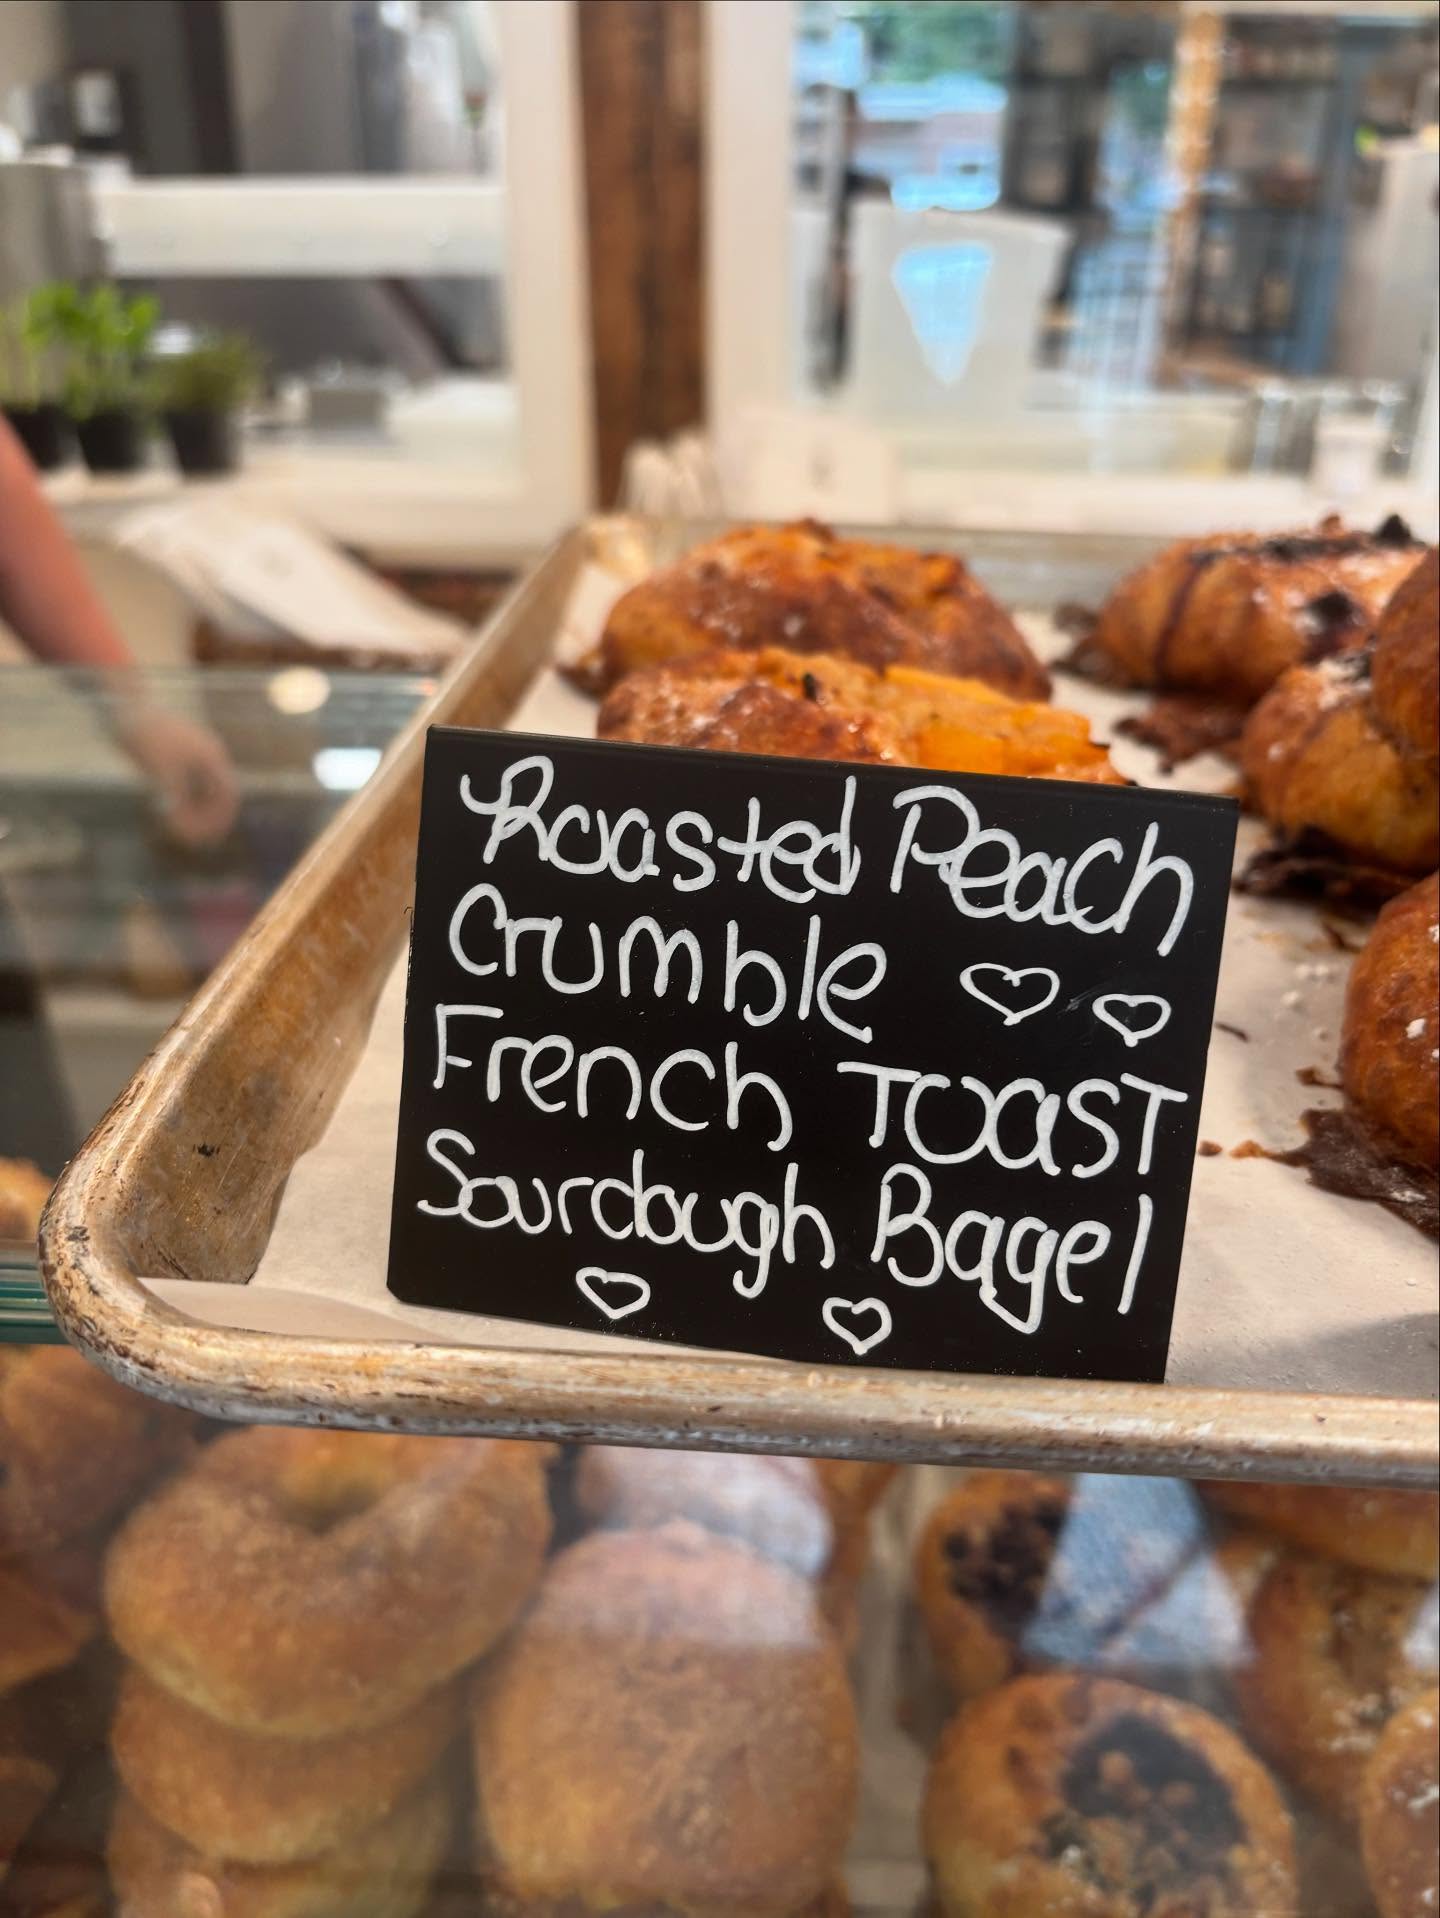 Roasted Peach
Crumble
French TOAST
Sourdough Bagel